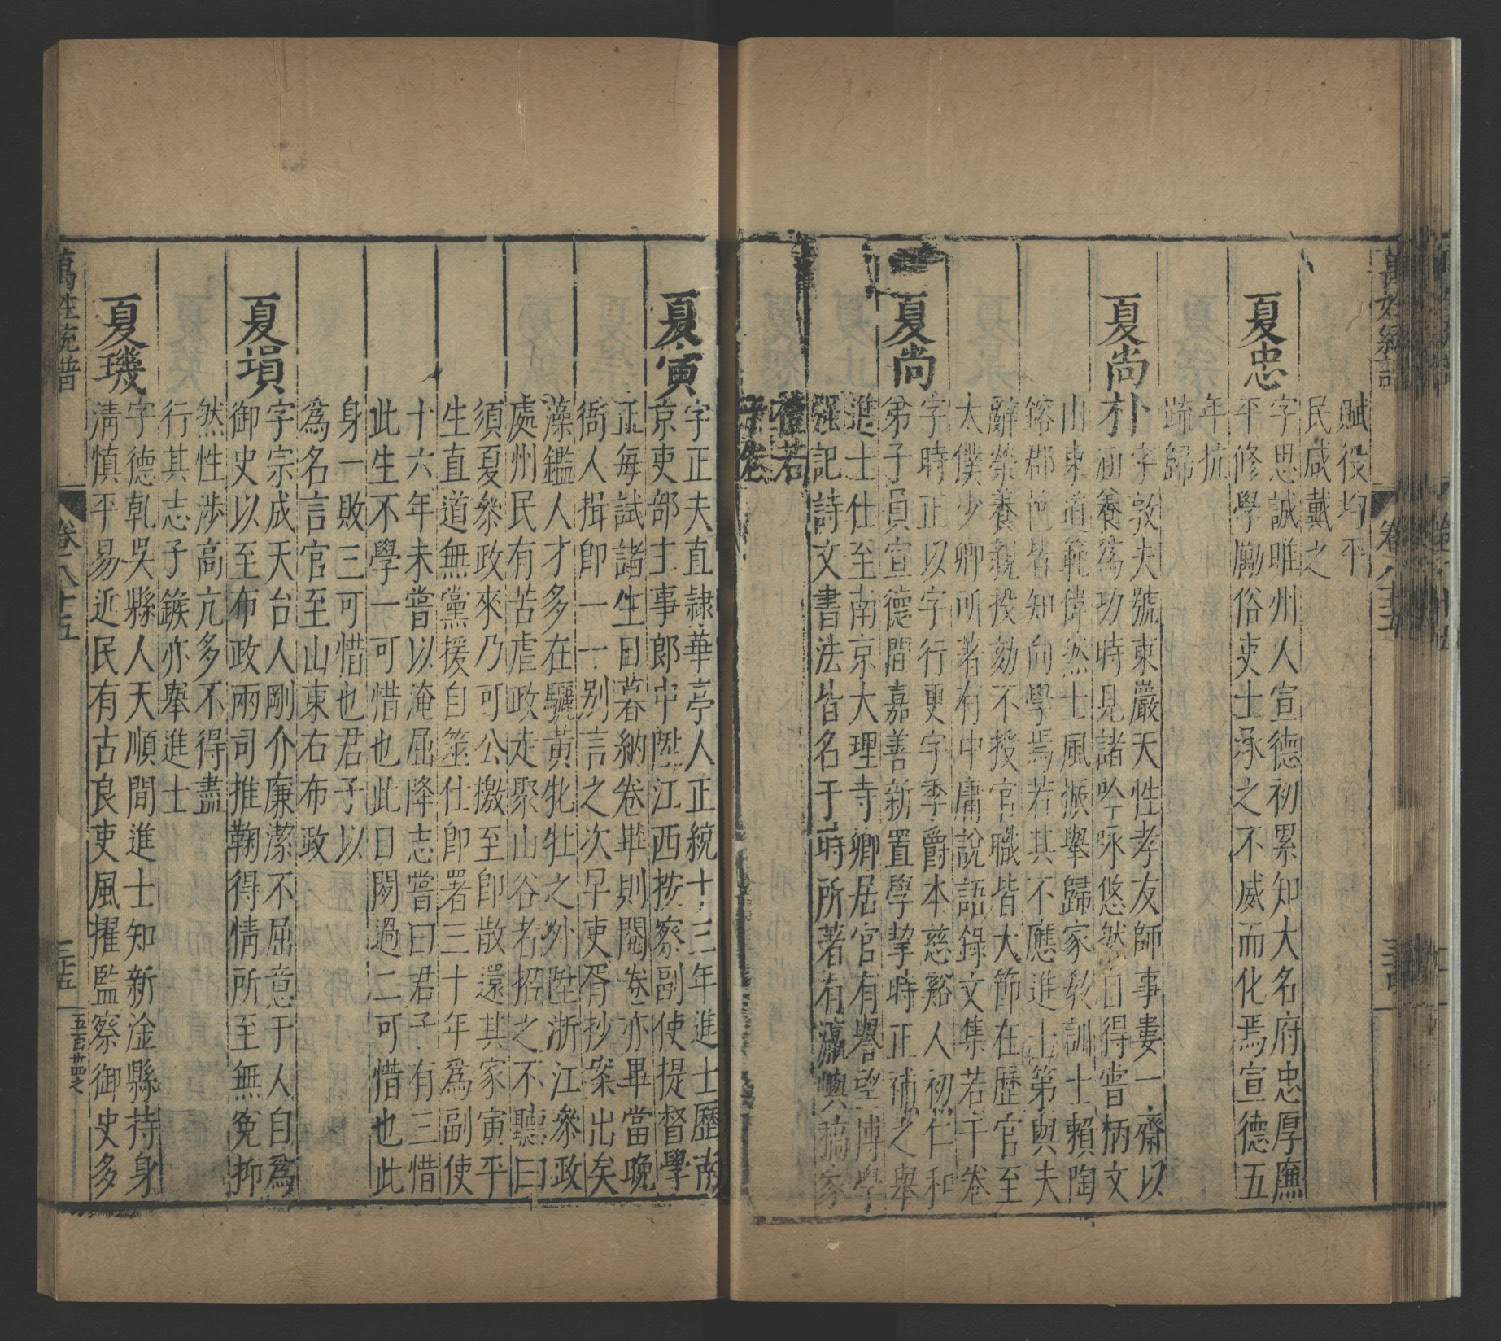 賦役均平
民咸戴之
夏忠
字思誠睢州人宣德初累知大名府忠厚廉
平修學勵俗吏士承之不威而化焉宣德五
年抗
疏歸
夏尚朴
字敦夫號東巖天性孝友師事婁一齋以
涵養爲功時見諸吟咏悠然自得嘗柄文
山東道範偉然士風振舉歸家教訓士賴陶
鎔郡 皆知向學焉若其不應進士第與夫
辭榮養親投劾不授官職皆大節在歷官至
太僕少卿所著有中庸說語錄文集若干卷
夏尚
字時正以字行更字季爵本慈谿人初仁和
弟子員宣德間嘉善新置學挈時正補之舉
進士仕至南京大理寺卿居官有譽望博學
强記詩文書法皆名于時所著有瀛嶼稿家
禮若
干卷
夏寅
字正夫直隸華亭人正統十三年進士歷南
京吏部主事郎中陞江西按察副使提督學
正每試諸生日暮納卷畢則閱卷亦畢當晚
衙人揖卽一一別言之次早吏胥抄案出矣
藻鑑人才多在驪黃牝牡之外陞浙江叅政
處州民有苦虐政走聚山谷者招之不聽曰
須夏叅政來乃可公檄至卽散還其家寅平
生直道無黨援自筮仕卽署三十年爲副使
十六年未嘗以淹屈降志嘗曰君子有三惜
此生不學一可惜也此日閑過二可惜也此
身一敗三可惜也君子以
爲名言官至山東右布政
夏塤
字宗成天台人剛介廉潔不屈意于人自爲
御史以至布政兩司推鞠得情所至無免抑
然性渉高亢多不得盡
行其志子鍭亦舉進士
夏璣
字德乾吳縣人天順間進士知新淦縣持身
淸慎平易近民有古良吏風擢監察御史多
萬姓統譜
卷八十五
三十五